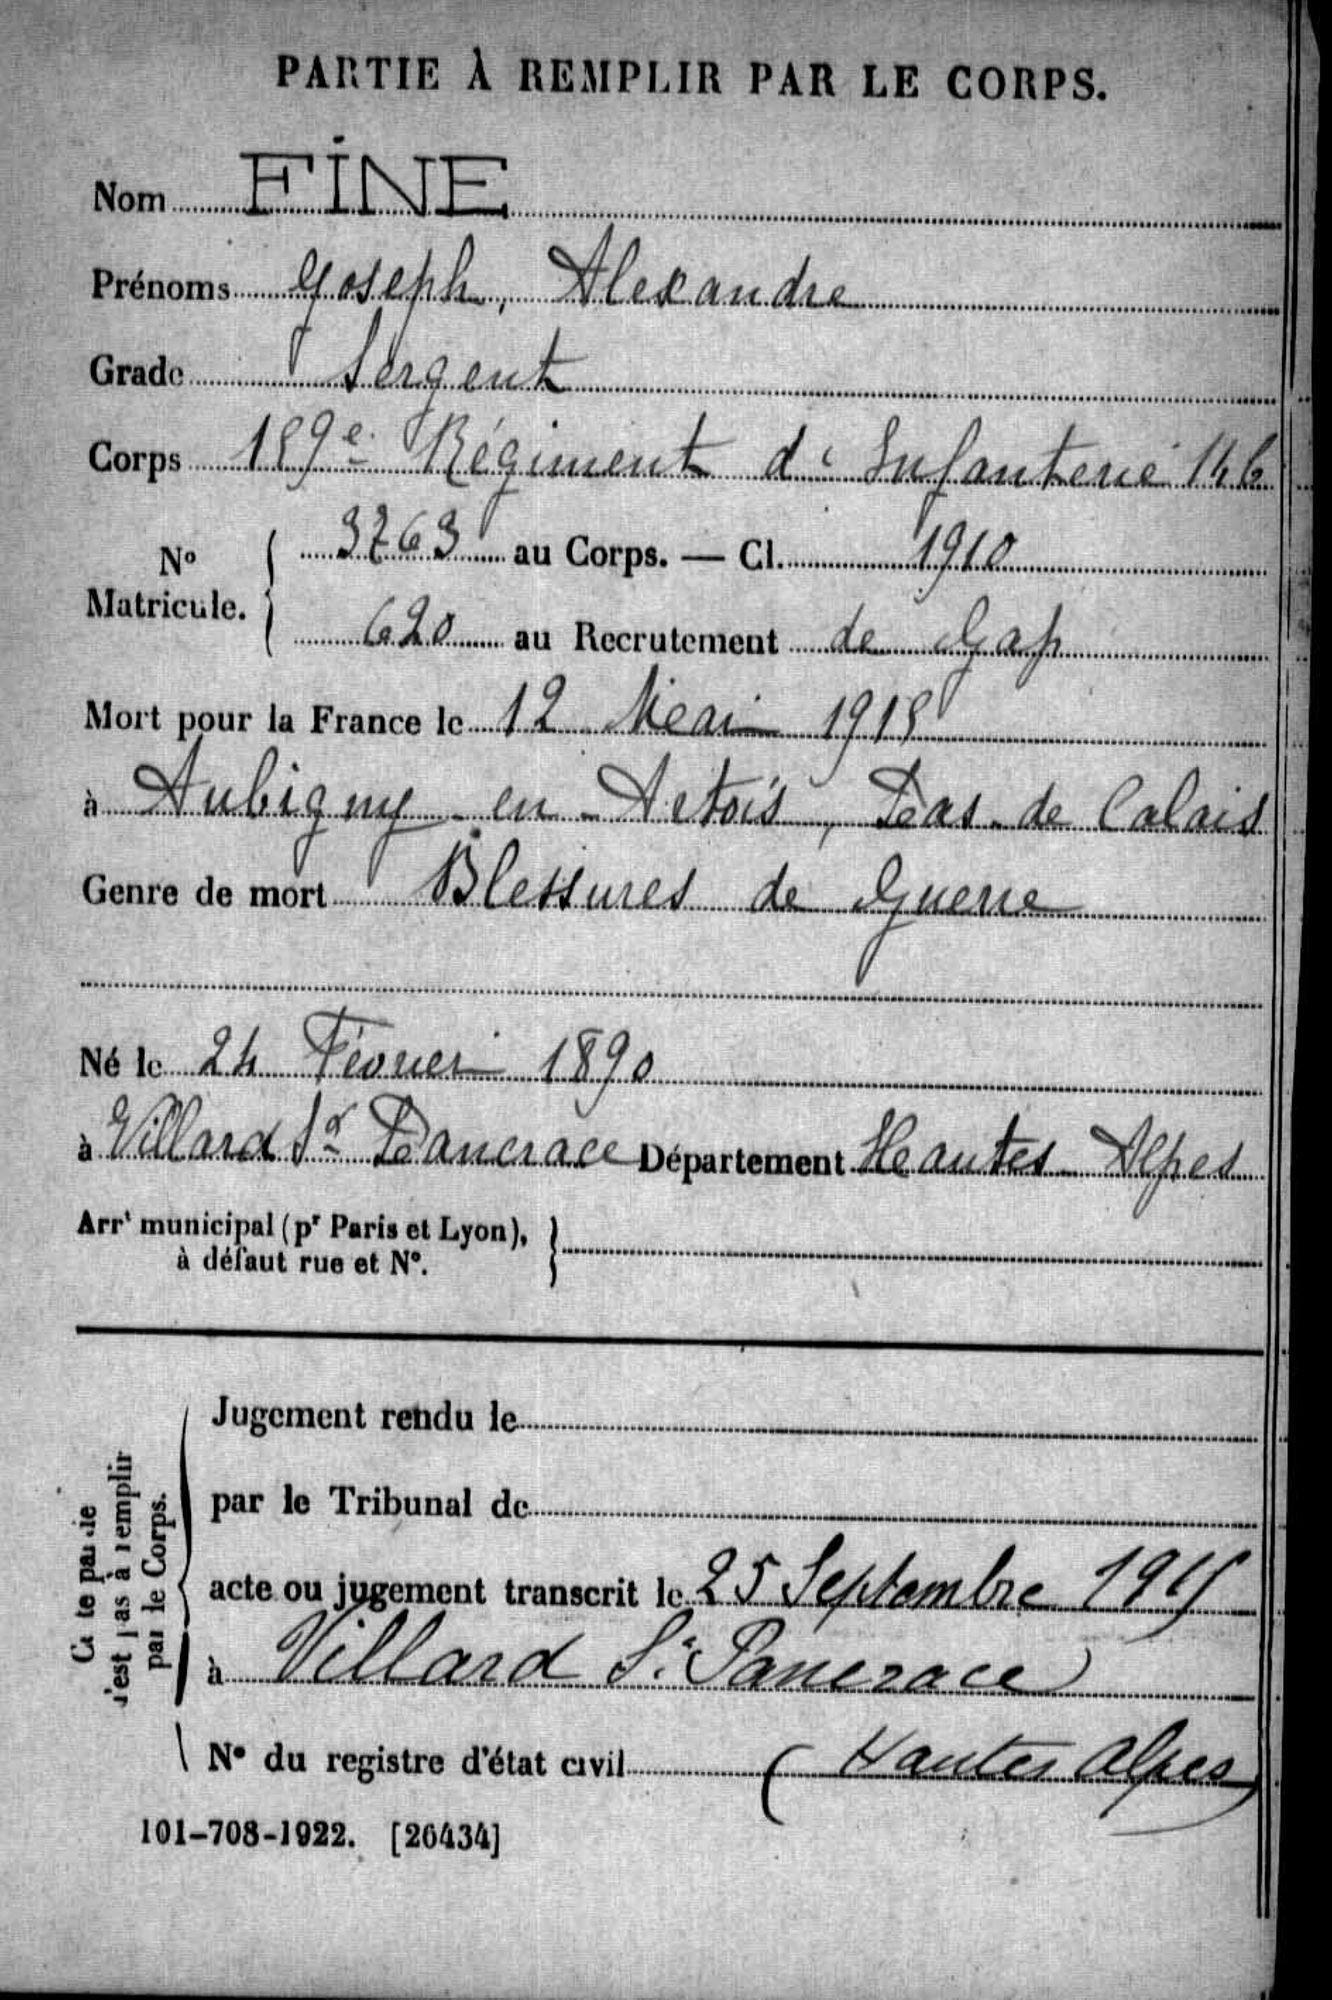 PARTIE À REMPLIR PAR LE CORPS.
Nom FINE
Prénoms Joseph, Alexandre
Grade Sergent
Corps 159e Régiment d'Infanterie
No Matricule. 3763 au Corps. — Cl. 1910
620 au Recrutement de Gap
Mort pour la France le 12 Mai 1915
à Aubigny-en-Artois, Pas-de Calais
Genre de mort Blessures de Guerre
Né le 24 Février 1890
à Villard St Pancrace Département Hautes-Alpes
Arrt municipal (pr Paris et Lyon),
à défaut rue et No.
Cette partie
n'est pas à remplir
par le Corps.
Jugement rendu le
par le Tribunal de
acte ou jugement transcrit le 25 Septembre 1915
à Villard St Pancrace
No du registre d'état civil (Hautes Alpes)
101-708-1922. [26434]